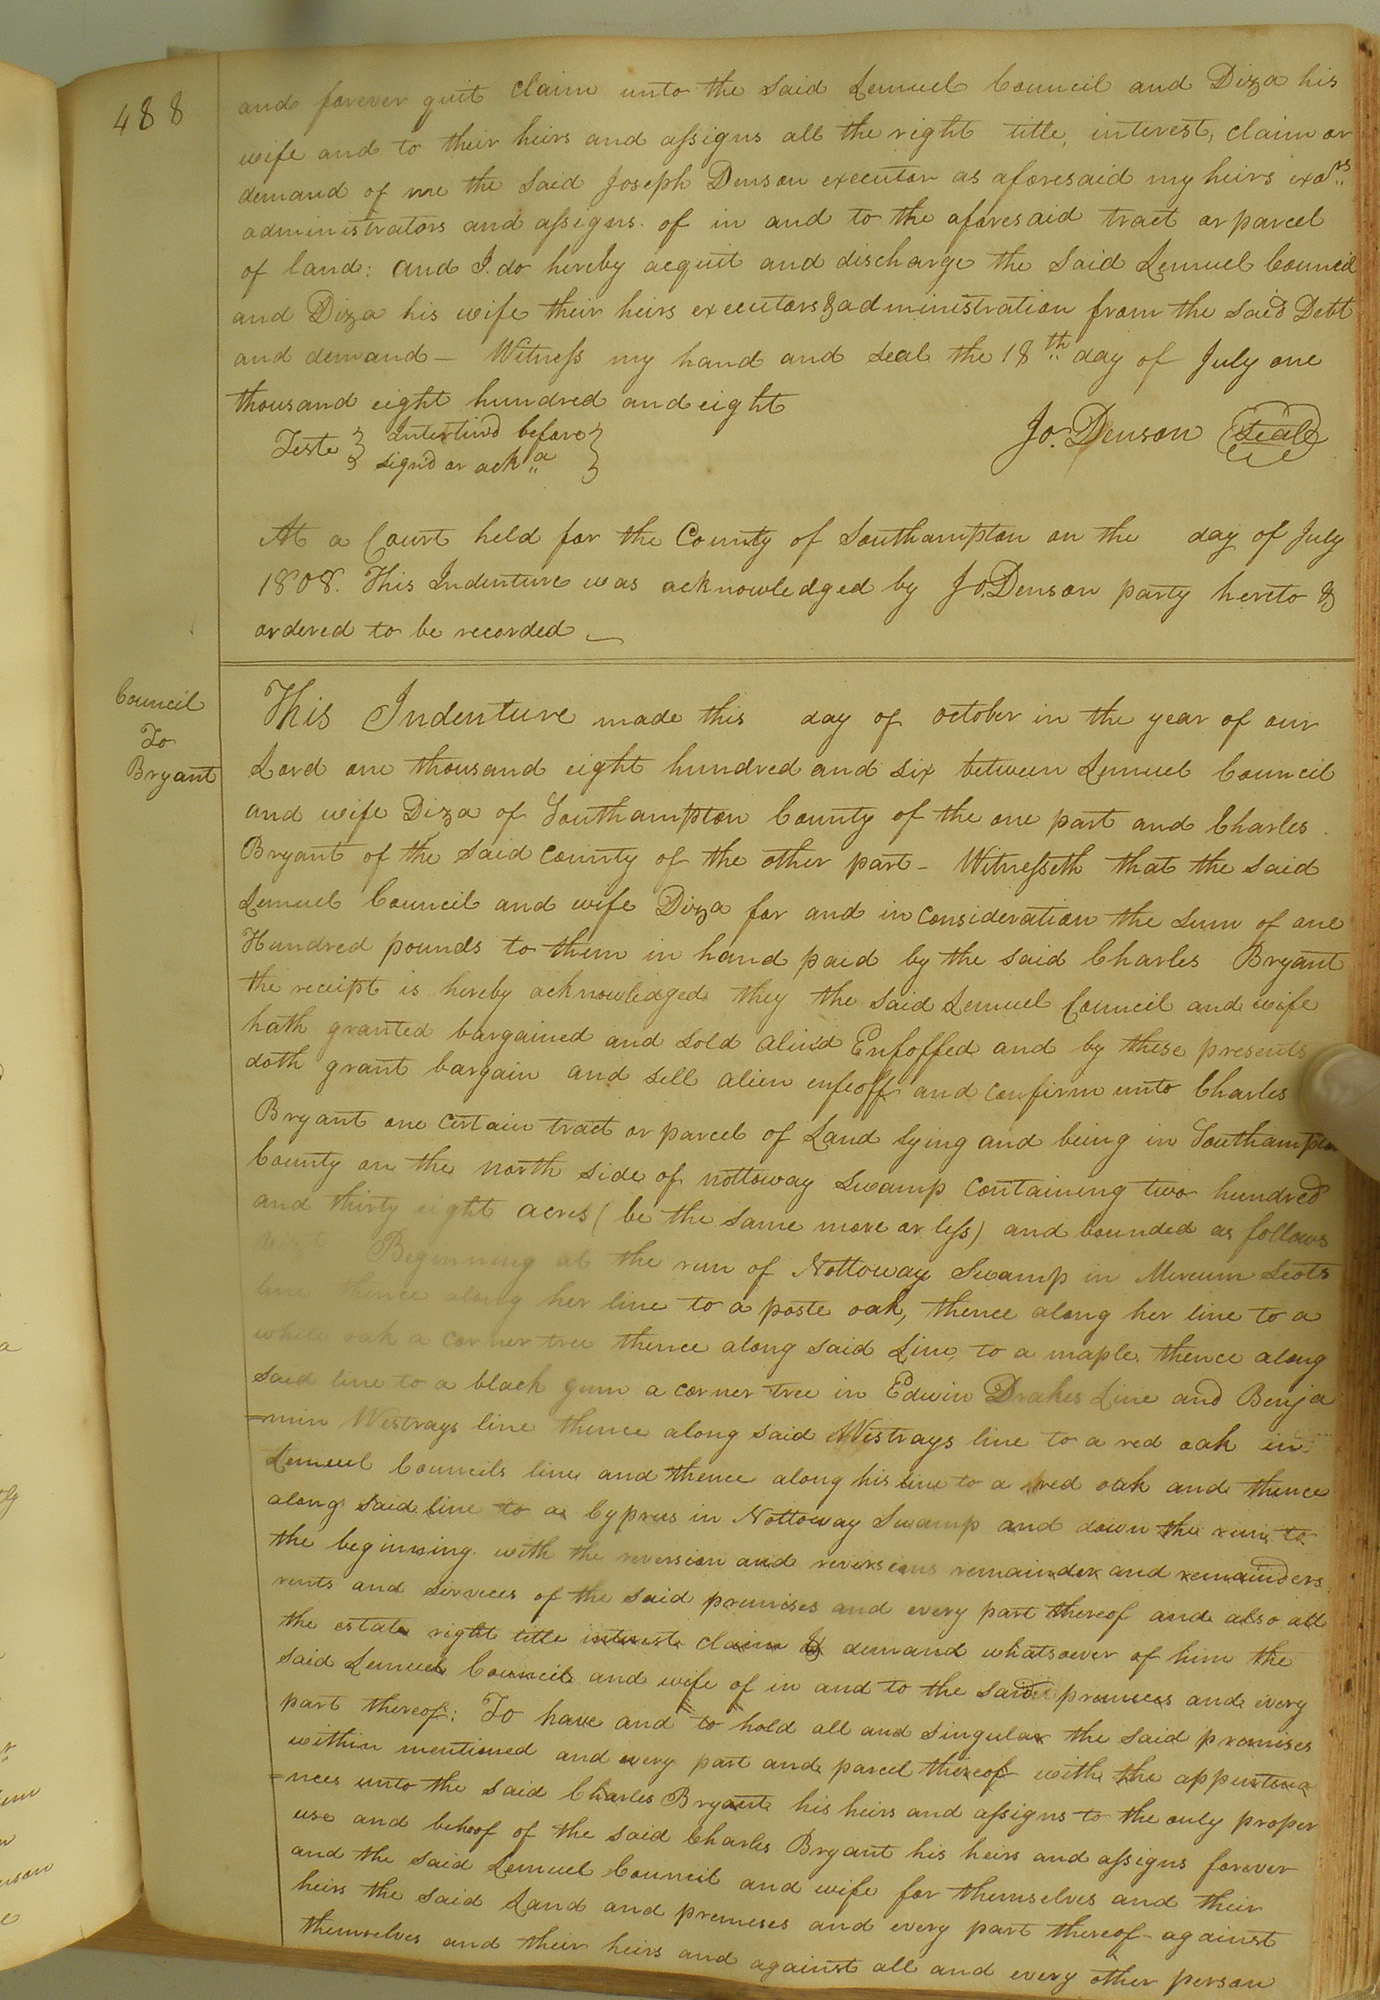 488
and forever quit claim unto the said Lemuel Council and Diza his
wife and to their heirs and assigns all the right title, interest, claim or
demand of me the said Joseph Denson executor as aforesaid my heirs exors
administrators and assigns. of in and to the aforesaid tract or parcel
of land: and I do hereby acquit and discharge the said Lemuel Council
and Diza his wife their heirs executors & administration from the said Debt
and demand — Witness my hand and seal the 18th day of July one
thousand eight hundred and eight
Teste } interlin'd before }
signd or ackd }
Jo. Denson Seal
At a Court held for the County of Southampton on the day of July
1808. This Indenture was acknowledged by Jo. Denson party hereto &
ordered to be recorded —
Council
To
Bryant
This Indenture made this day of October in the year of our
Lord one thousand eight hundred and six between Lemuel Council
and wife Diza of Southampton County of the one part and Charles
Bryant of the said County of the other part - Witnesseth that the said
Lemuel Council and wife Diza for and in consideration the sum of one
Hundred pounds to them in hand paid by the said Charles Bryant
the receipt is hereby acknowledged they the said Lemuel Council and wife
hath granted bargained and sold alien'd Enfoffed and by these presents
doth grant bargain and sell alien enfeoff and confirm unto Charles
Bryant one certain tract or parcel of Land lying and being in Southampton
County on the north side of nottoway Swamp containing two hundred
and thirty eight acres (be the same more or less) and bounded as follows
viz Beginning at the run of Nottoway Swamp in Mereum Scots
line thence along her line to a poste oak, thence along her line to a
white oak a corner tree thence along said Line, to a maple. thence along
said line to a black gum a corner tree in Edwin Drakes Line and Benja
=min Westrays line thence along said Westrays line to a red oak in
Lemuel Councils line and thence along his line to a red oak and thence
along said line to a Cyprus in Nottoway Swamp and down the run to
the beginning. with the reversion and reversions remainder and remainders
rents and services of the said premises and every part thereof and also all
the estate right title interest claim & demand whatsoever of him the
said Lemuel Council and wife of in and to the said premices and every
part thereof: To have and to hold all and singular the said premises
within mentioned and every part and parcel thereof with the appurtena
=nces unto the said Charles Bryant his heirs and assigns to the only proper
use and behoof of the said Charles Bryant his heirs and assigns forever
and the said Lemuel Council and wife for themselves and their
heirs the said Land and premeses and every part thereof against
themselves and their heirs and against all and every other person